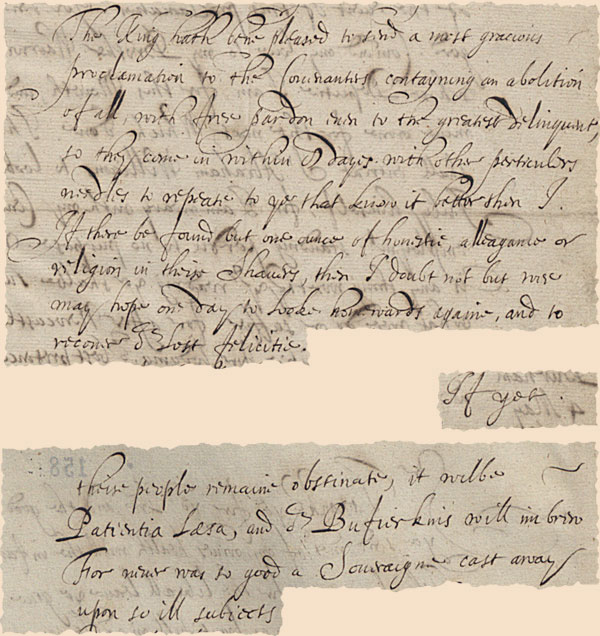 The King hath bene pleased to send a most gracious
proclamation to the Covenanters contayning an abolition
of all, with free pardon even to the greatest delinquent,
so they come in within 8 dayes with other perticulers
needles to repeate to yow that know it better then I.
If there be found but one ounce of honestie, alleagance or
religion in theise Shauers then I doubt not but wee
may hope one day to looke homewards againe, and to
recover or lost felicitie.
If yet
158
theise people remaine obstinate, it wilbe
Patientia Læsa, and or Buffierkins will imbrew
For never was so good a Soveraigne cast away
upon so ill subiects